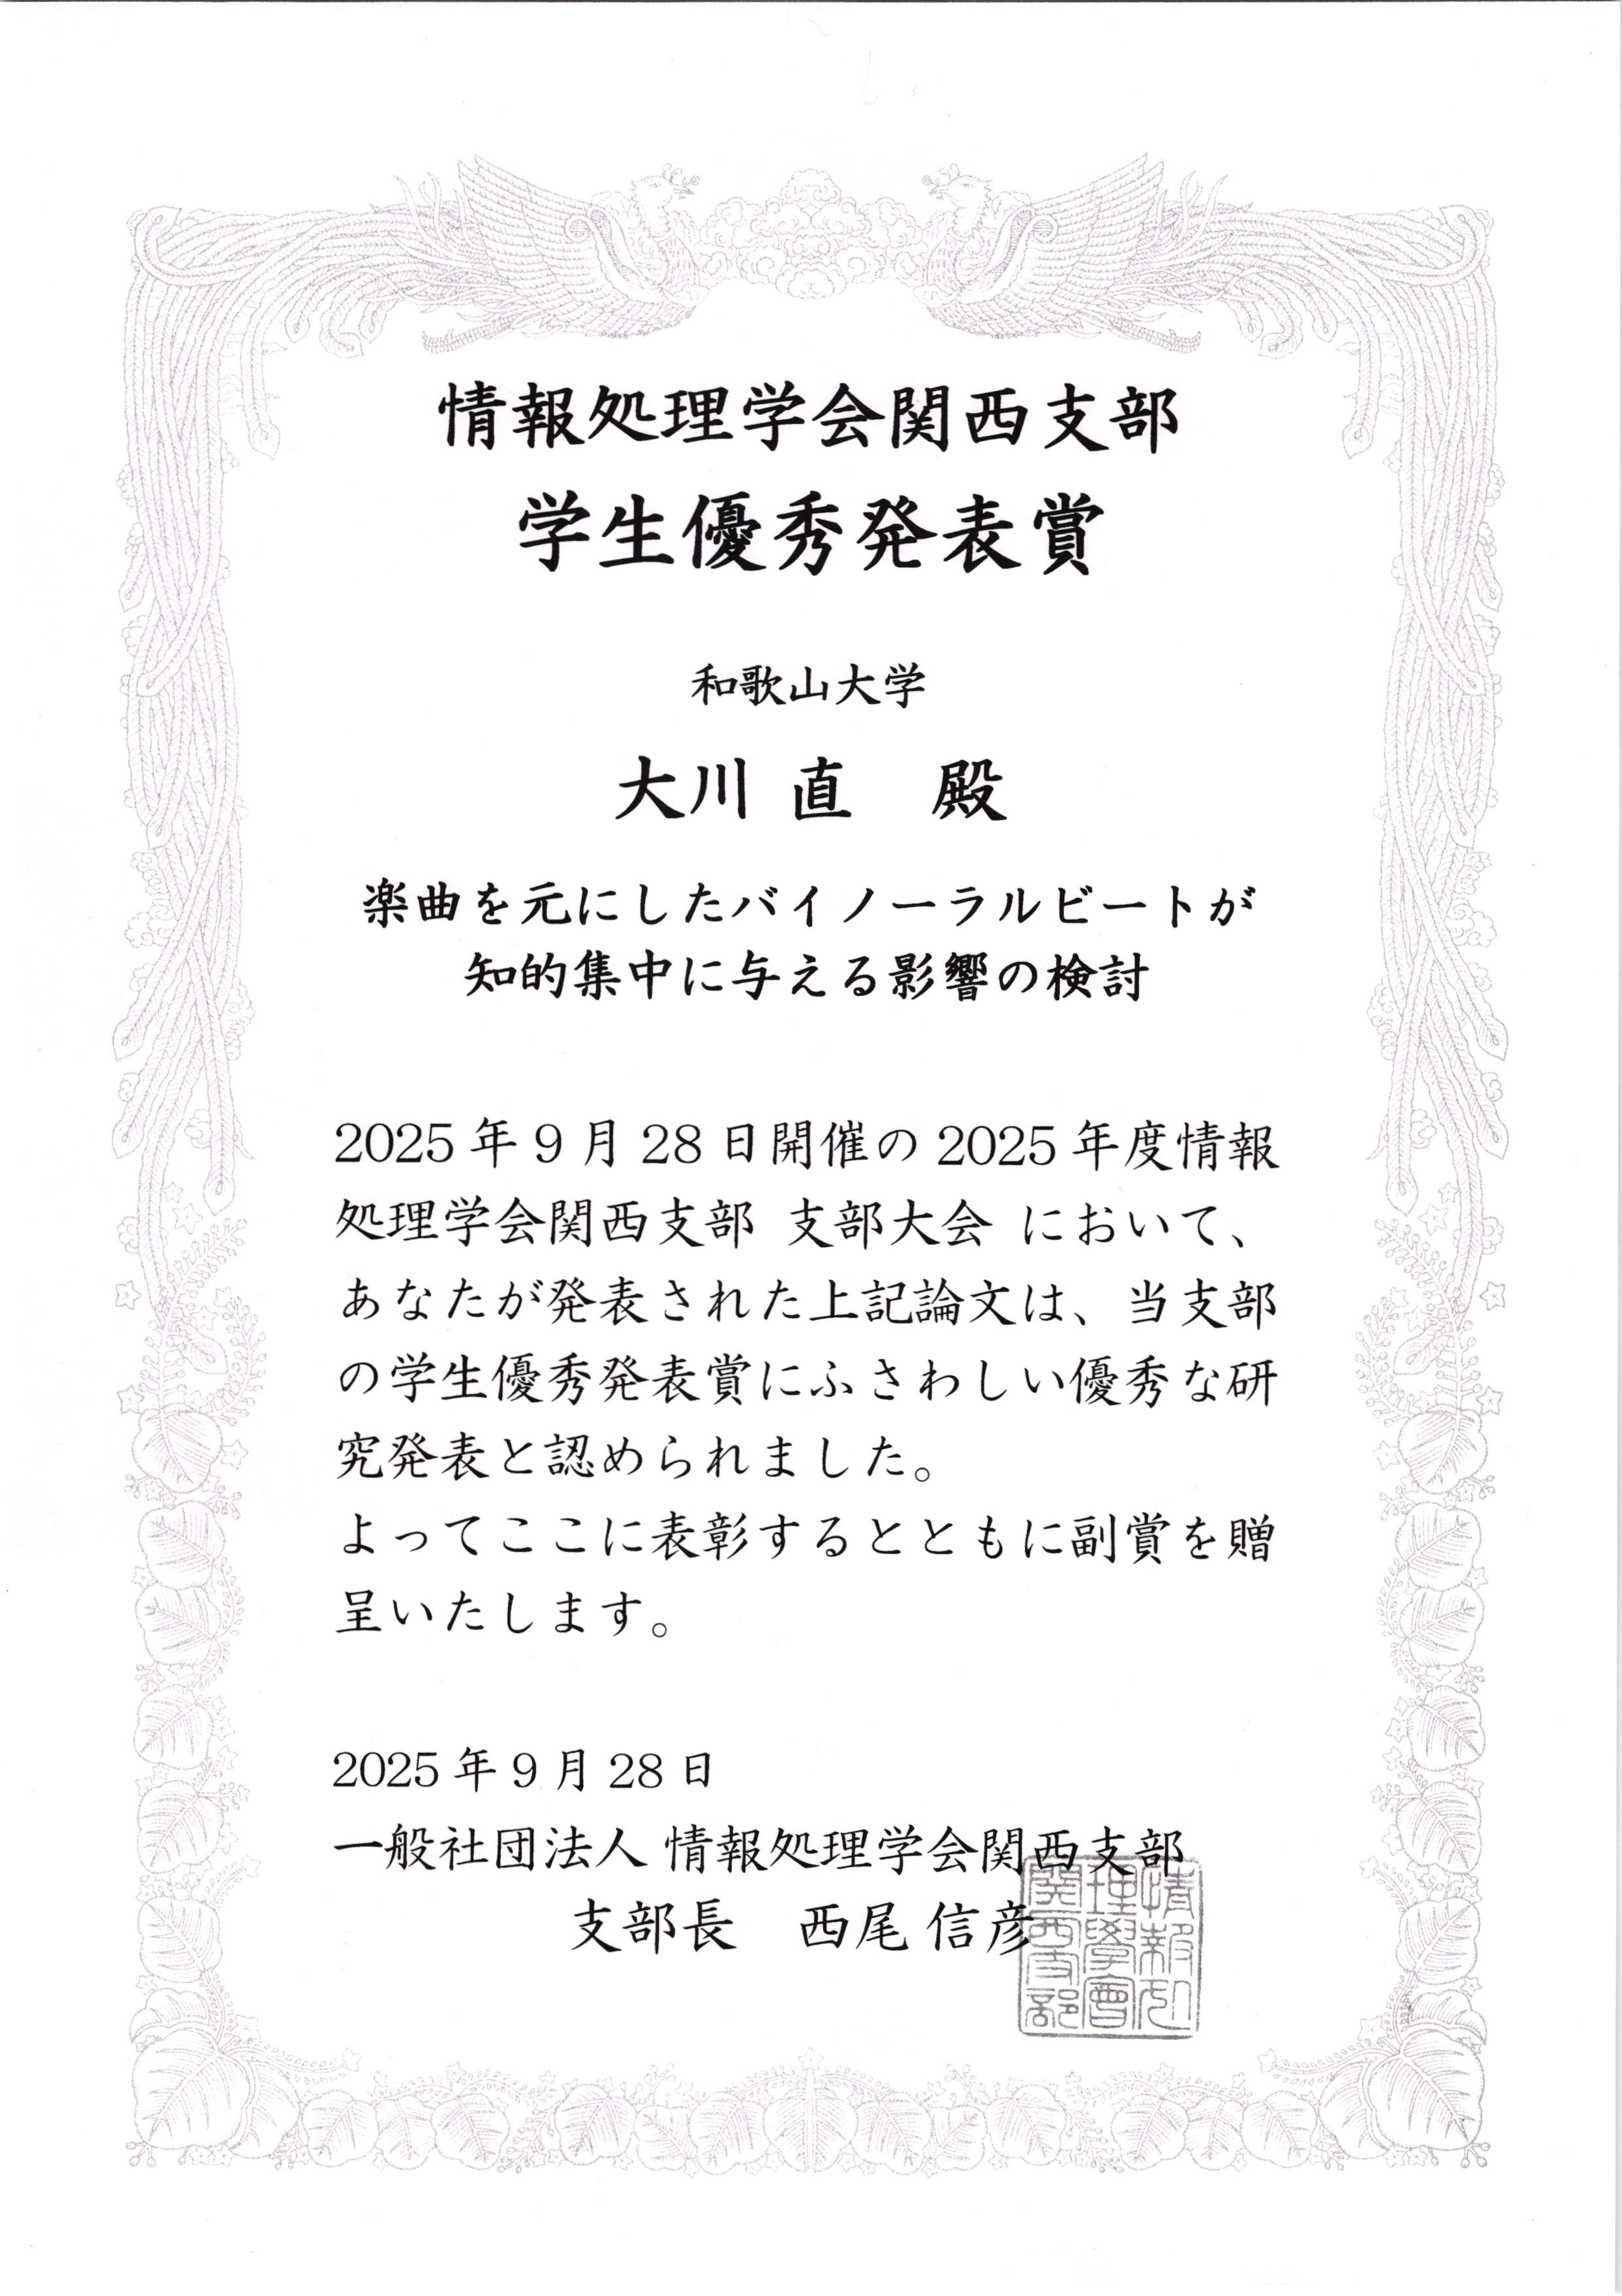 情報処理学会関西支部
学生優秀発表賞
和歌山大学
大川 直　殿
楽曲を元にしたバイノーラルビートが
知的集中に与える影響の検討
2025 年 9 月 28 日開催の 2025 年度情報
処理学会関西支部 支部大会 において、
あなたが発表された上記論文は、当支部
の学生優秀発表賞にふさわしい優秀な研
究発表と認められました。
よってここに表彰するとともに副賞を贈
呈いたします。
2025 年 9 月 28 日
一般社団法人 情報処理学会関西支部
支部長　西尾 信彦
情報処
理學會
関西支部